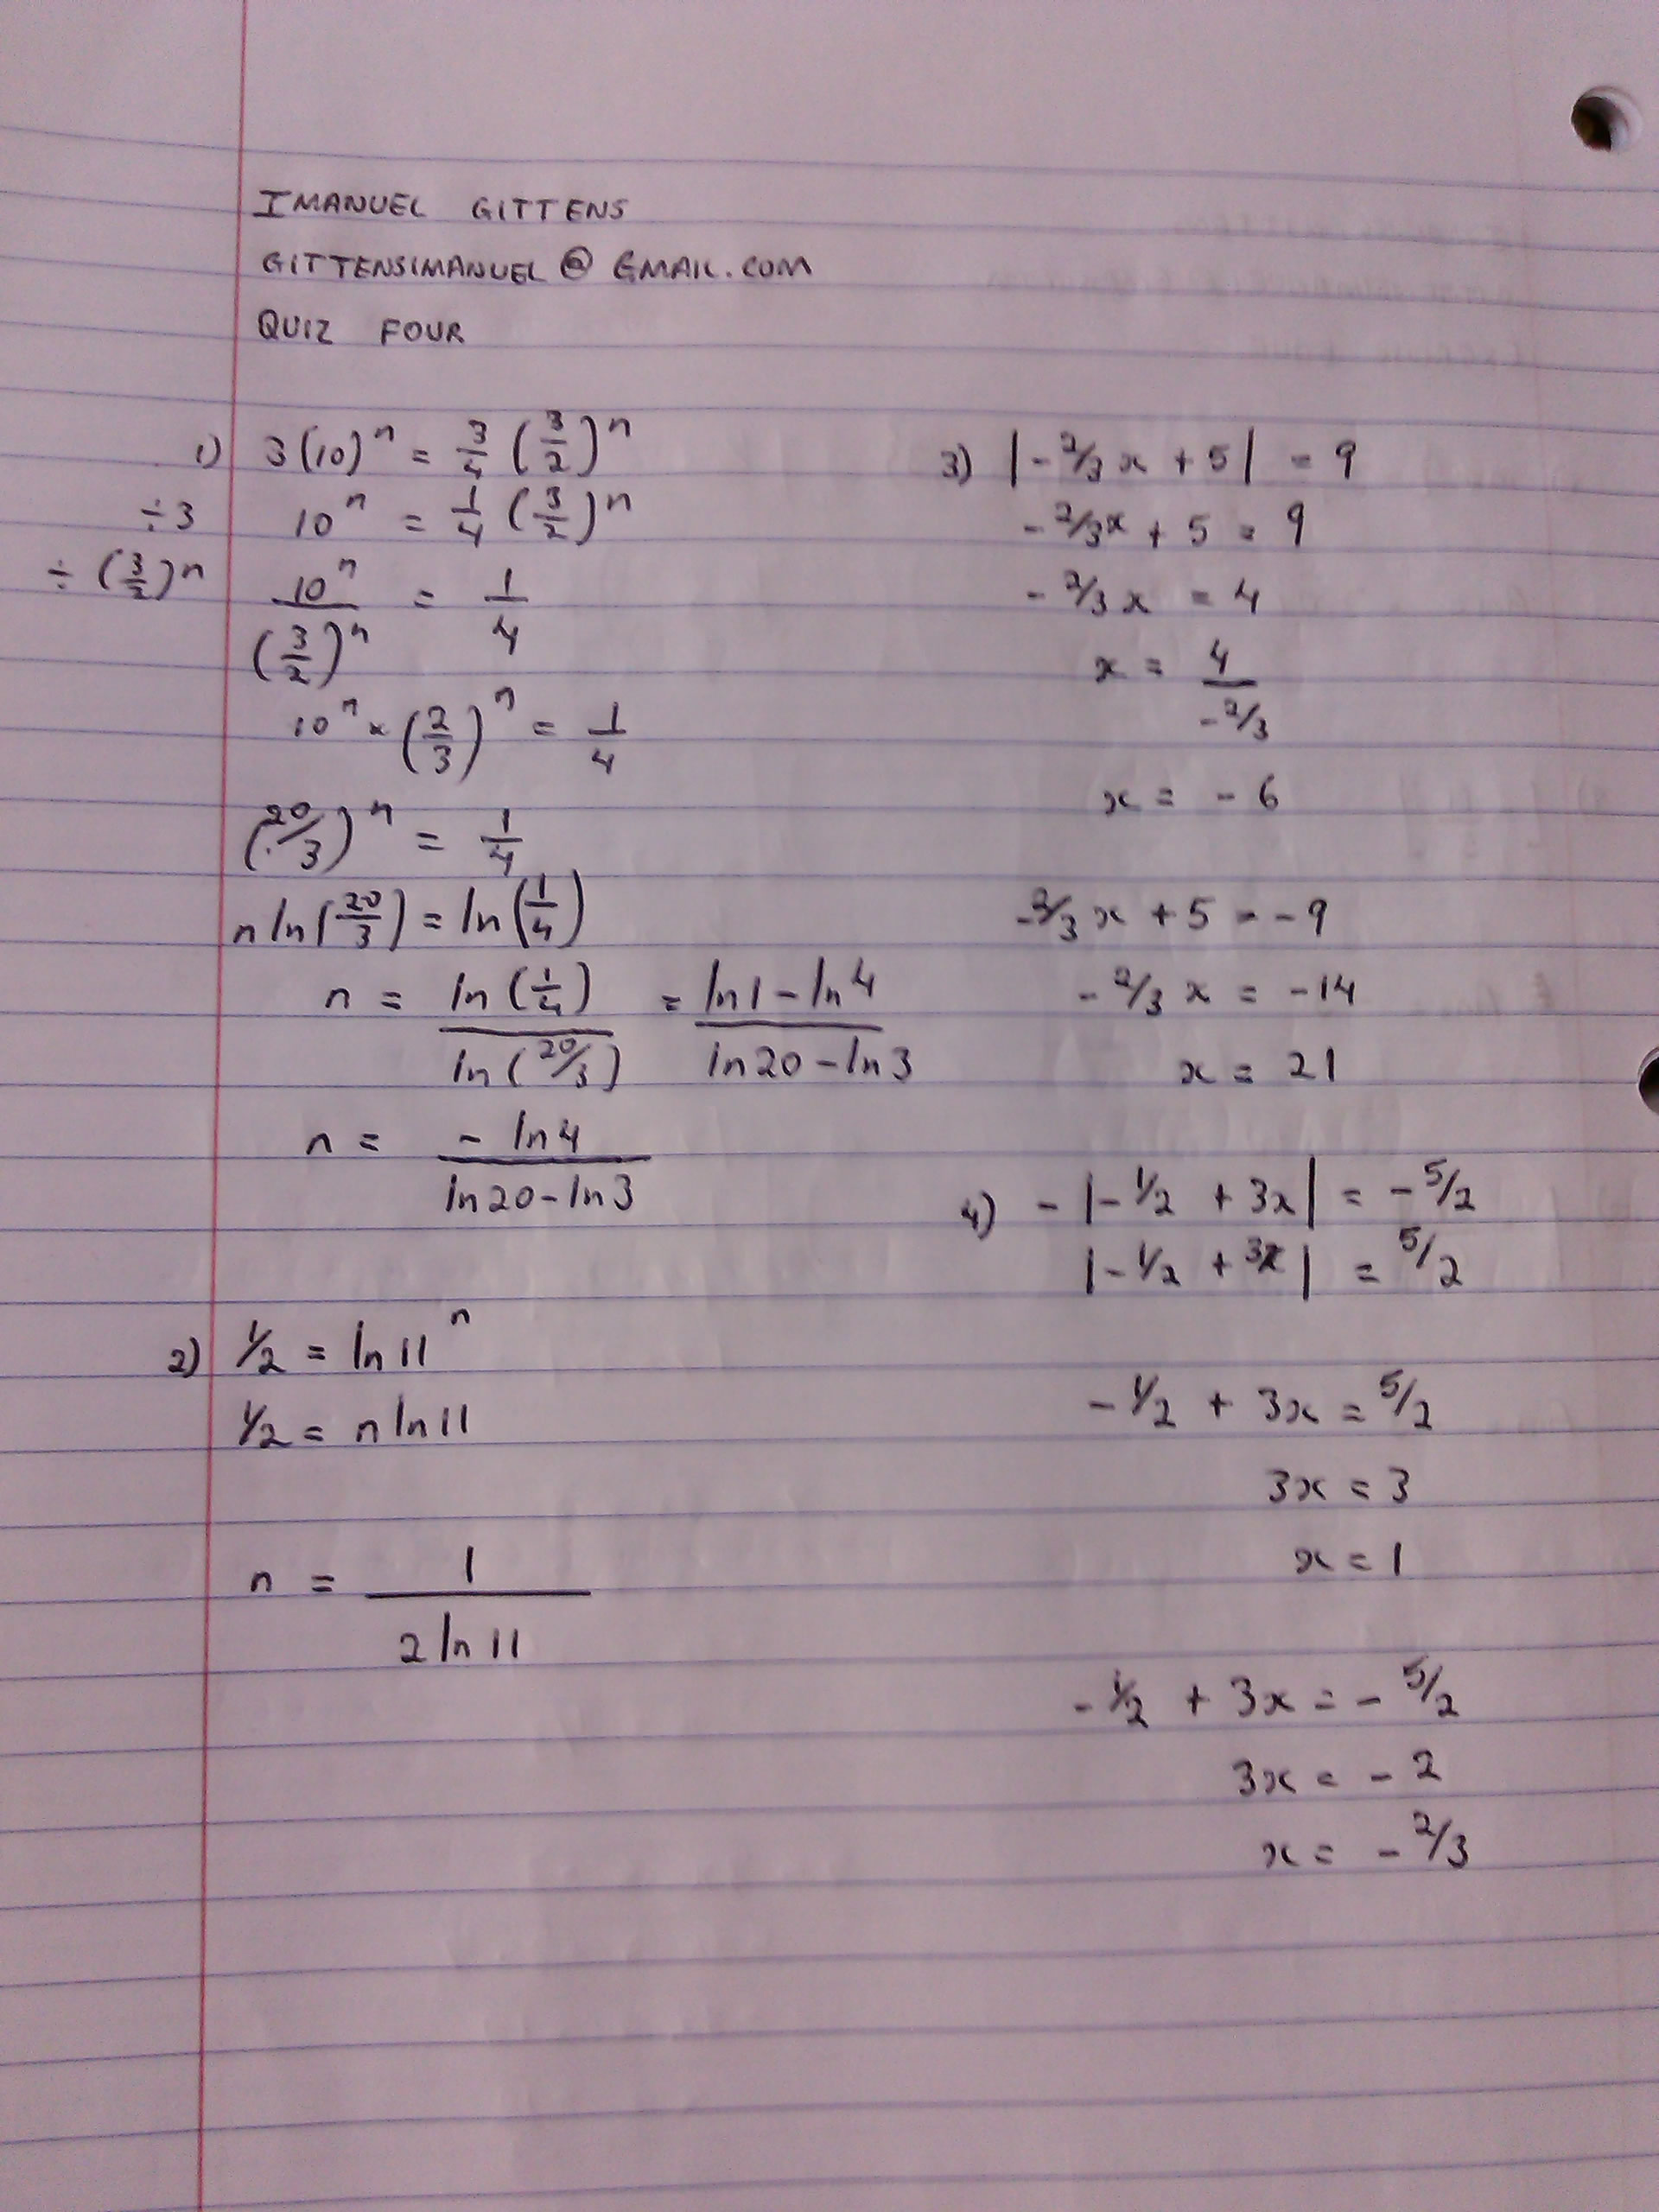 IMANUEL GITTENS
GITTENSIMANUEL@GMAIL.COM
QUIZ FOUR
1) 3(10)^n = 3/4 (3/2)^n
÷3 10^n = 1/4 (3/2)^n
÷(3/2)^n 10^n/(3/2)^n = 1/4
10^n × (2/3)^n = 1/4
(20/3)^n = 1/4
n ln(20/3) = ln(1/4)
n = ln(1/4)/ln(20/3) = (ln1 - ln4)/(ln20 - ln3)
n = - ln4/(ln20 - ln3)
2) 1/2 = ln 11^n
1/2 = n ln 11
n = 1/(2 ln 11)
3) |-2/3 x + 5| = 9
-2/3 x + 5 = 9
-2/3 x = 4
x = 4/(-2/3)
x = -6
-2/3 x + 5 = -9
-2/3 x = -14
x = 21
4) -|-1/2 + 3x| = -5/2
|-1/2 + 3x| = 5/2
-1/2 + 3x = 5/2
3x = 3
x = 1
-1/2 + 3x = -5/2
3x = -2
x = -2/3